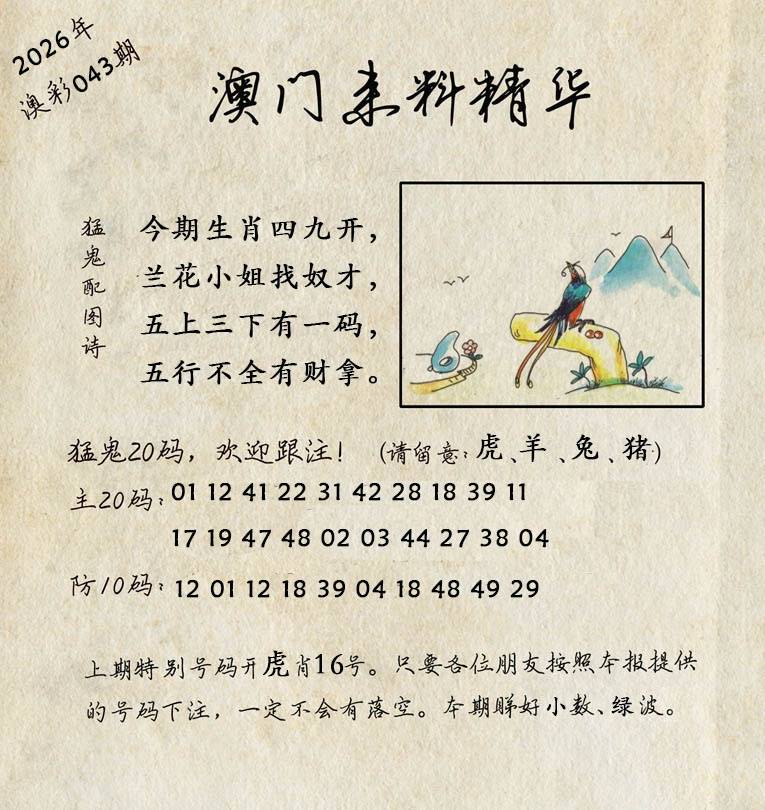 2026年
澳彩043期
澳门来料精华
猛鬼配图诗
今期生肖四九开，
兰花小姐找奴才，
五上三下有一码，
五行不全有财拿。
猛鬼20码，欢迎跟注！（请留意：虎、羊、兔、猪）
主20码：01 12 41 22 31 42 28 18 39 11
17 19 47 48 02 03 44 27 38 04
防10码：12 01 12 18 39 04 18 48 49 29
上期特别号码开虎肖16号。只要各位朋友按照本报提供
的号码下注，一定不会有落空。本期睇好小数、绿波。